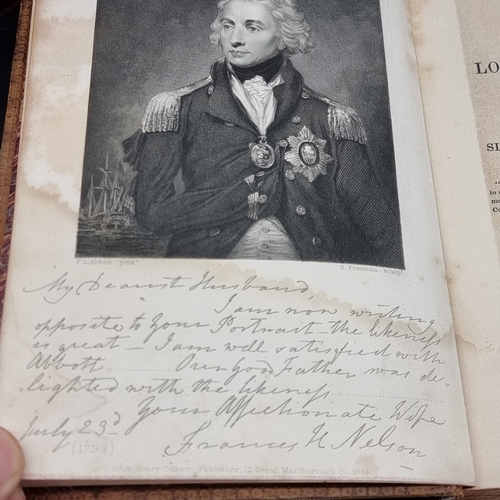 F. L. Abbott, pinxt
G. Freeman, sculpt
My Dearest Husband,
I am now writing
opposite to your Portrait the likeness
is great – I am well satisfied with
Abbott............Our good Father was de-
lighted with the likeness............
Your Affectionate Wife
July 23d
Frances H Nelson
London, Henry Colburn, Publisher, 13 Great Marlborough St.
LO
SI